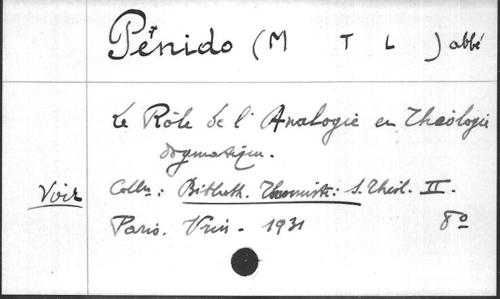 Pénido (M T L) abbé
Le Rôle de l'Analogie en Théologie
dogmatique.
Voir Colln : Biblioth. Thomiste : S. Théol. II.
Paris. Vrin - 1931 8º